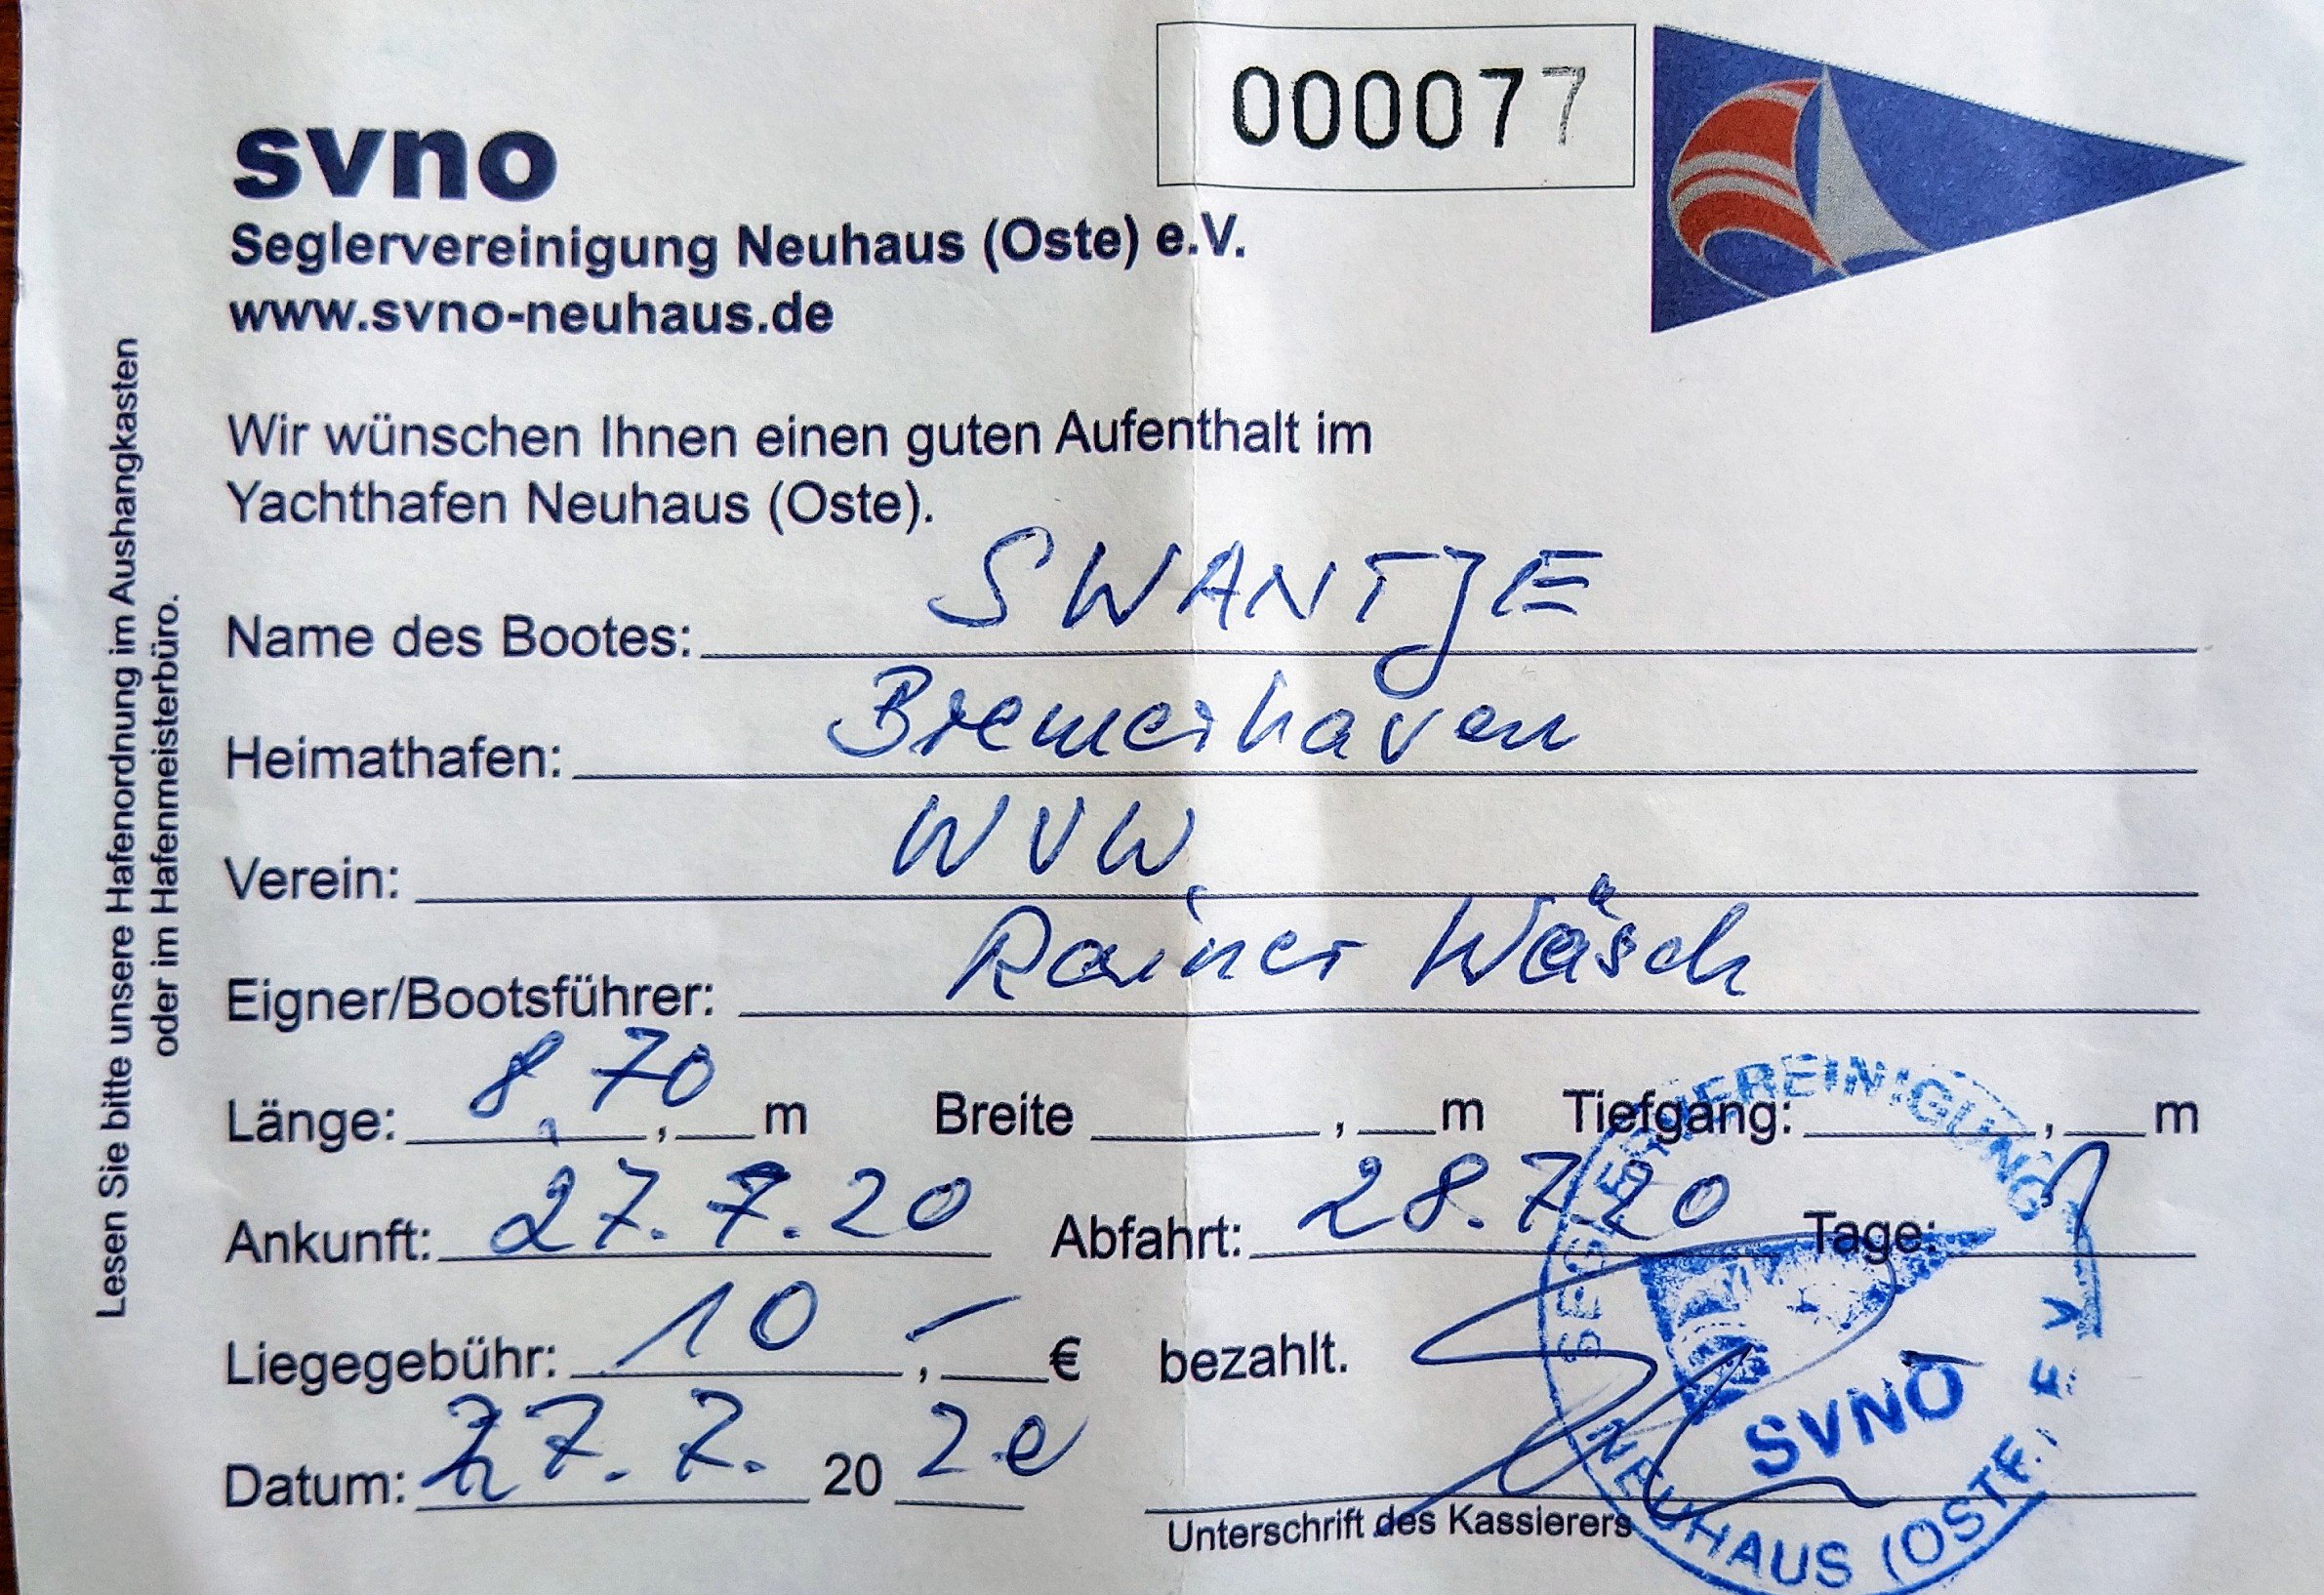 000077
svno
Seglervereinigung Neuhaus (Oste) e.V.
www.svno-neuhaus.de
Wir wünschen Ihnen einen guten Aufenthalt im
Yachthafen Neuhaus (Oste).
Name des Bootes: SWANTJE
Heimathafen: Bremerhaven
Verein: WVW
Eigner/Bootsführer: Rainer Wäsch
Länge: 8,70 m Breite , m Tiefgang: , m
Ankunft: 27.7.20 Abfahrt: 28.7.20 Tage: 1
Liegegebühr: 10,- € bezahlt.
Datum: 27.7. 20 20
Unterschrift des Kassierers
Lesen Sie bitte unsere Hafenordnung im Aushangkasten
oder im Hafenmeisterbüro.
SEGLERVEREINIGUNG
NEUHAUS (OSTE) E.V.
SVNO